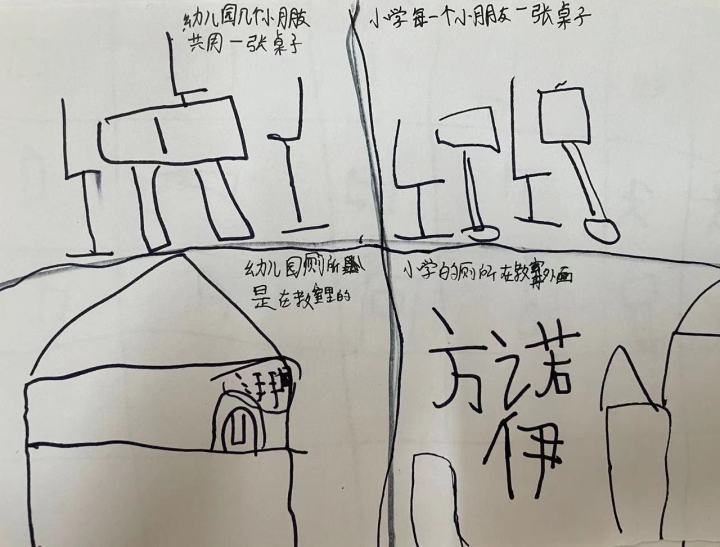 幼儿园几个小朋友
共用一张桌子
小学每一个小朋友一张桌子
幼儿园厕所
是在教室里的
小学的厕所在教室外面
方诺
伊